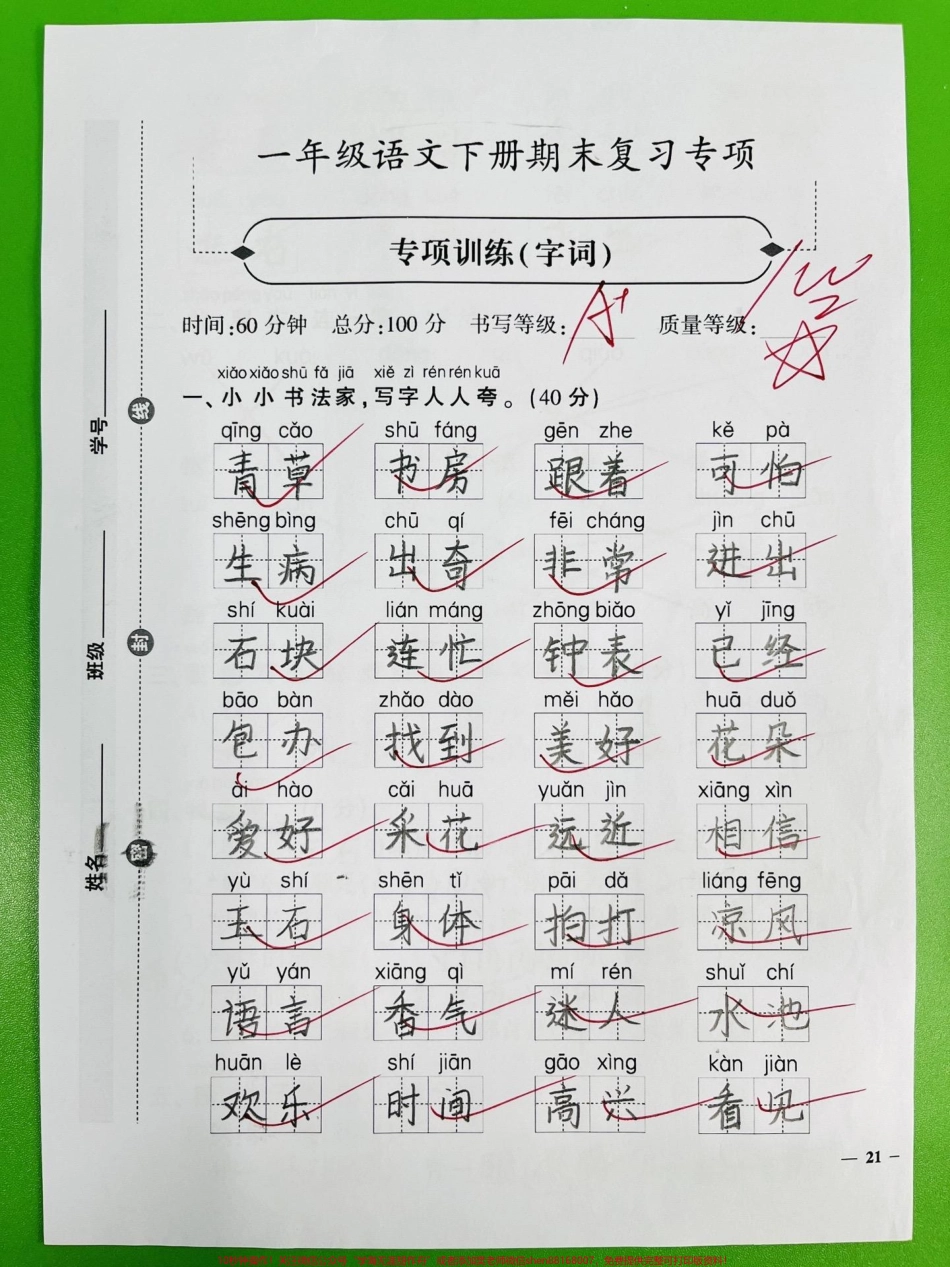 一年级语文下册期末复习专项
专项训练(字词)
时间:60分钟 总分:100分 书写等级: A+ 质量等级: 100
xiǎo xiǎo shū fǎ jiā xiě zì rén rén kuā
一、小小书法家,写字人人夸。(40分)
qīng cǎo shū fáng gēn zhe kě pà
青草 书房 跟着 可怕
shēng bìng chū qí fēi cháng jìn chū
生病 出奇 非常 进出
shí kuài lián máng zhōng biǎo yǐ jīng
石块 连忙 钟表 已经
bāo bàn zhǎo dào měi hǎo huā duǒ
包办 找到 美好 花朵
ài hào cǎi huā yuǎn jìn xiāng xìn
爱好 采花 远近 相信
yù shí shēn tǐ pāi dǎ liáng fēng
玉石 身体 拍打 凉风
yǔ yán xiāng qì mí rén shuǐ chí
语言 香气 迷人 水池
huān lè shí jiān gāo xìng kàn jiàn
欢乐 时间 高兴 看见
— 21 —
学号
班级
姓名
线
封
密